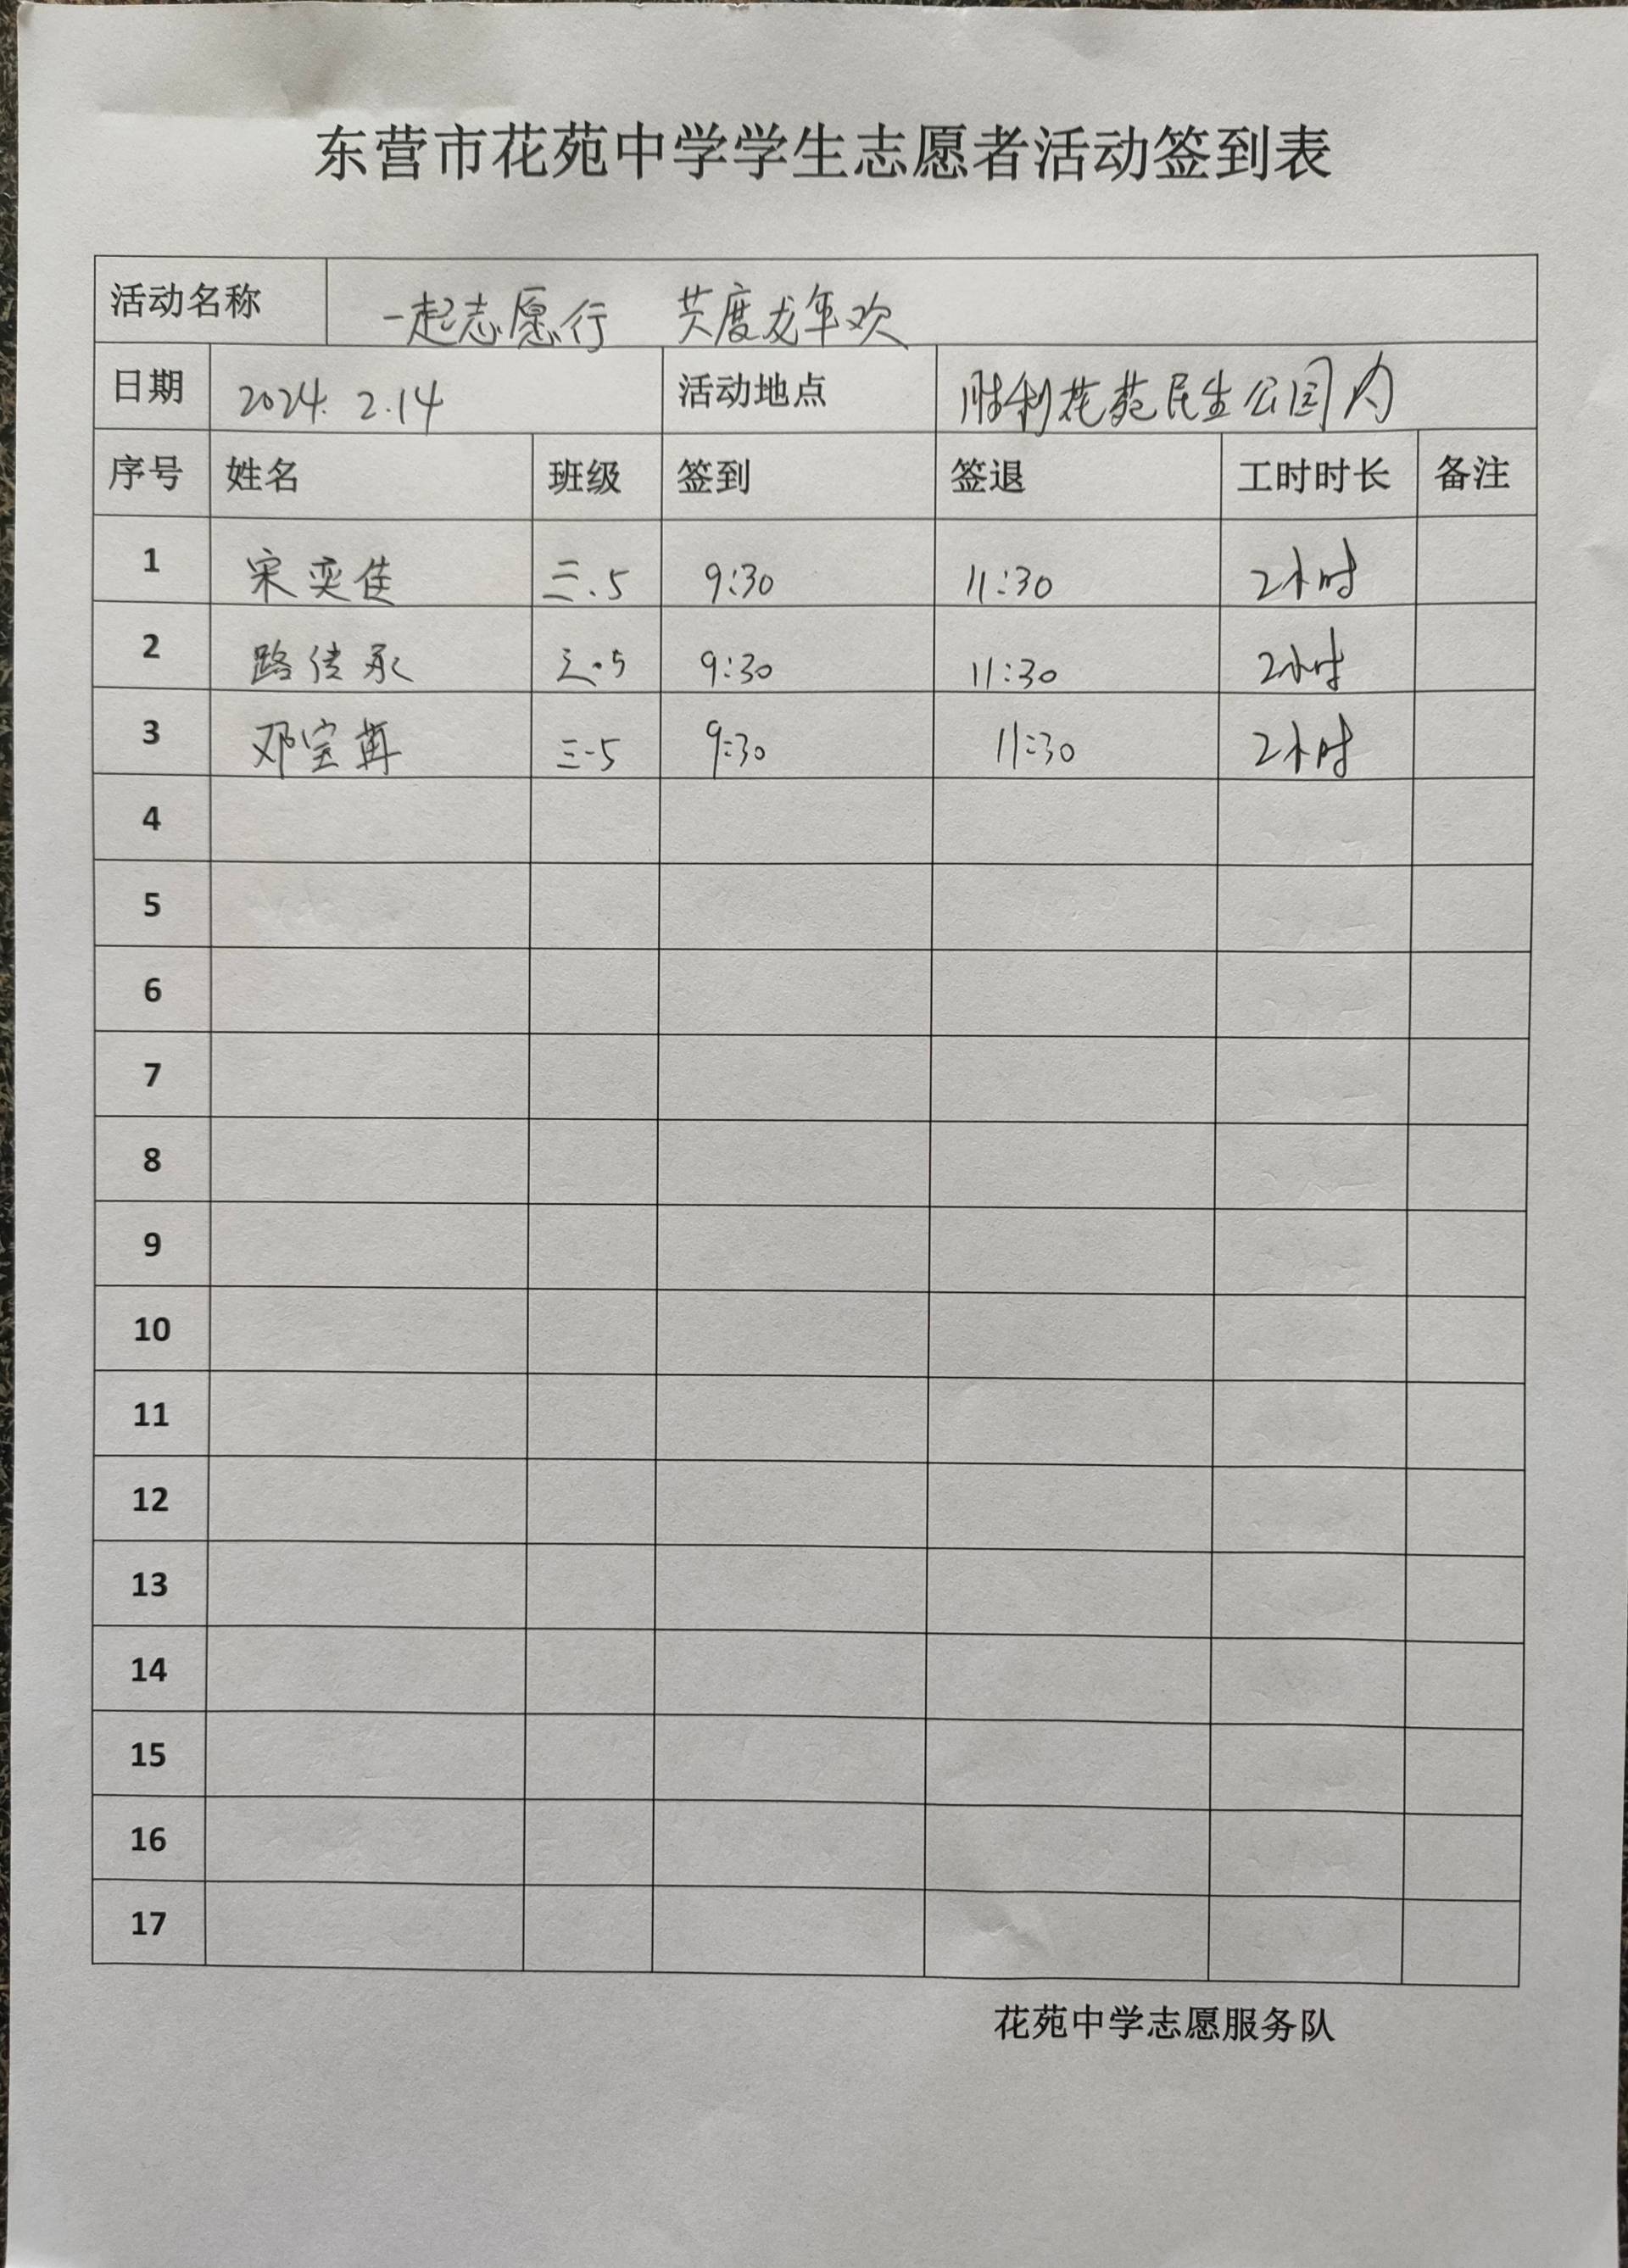 东营市花苑中学学生志愿者活动签到表
活动名称 一起志愿行 共度龙年欢
日期 2024. 2.14 活动地点 胜利花苑民生公园内
序号 姓名 班级 签到 签退 工时时长 备注
1 宋奕佳 三.5 9:30 11:30 2小时
2 路传承 三.5 9:30 11:30 2小时
3 邓宝 三-5 9:30 11:30 2小时
4
5
6
7
8
9
10
11
12
13
14
15
16
17
花苑中学志愿服务队